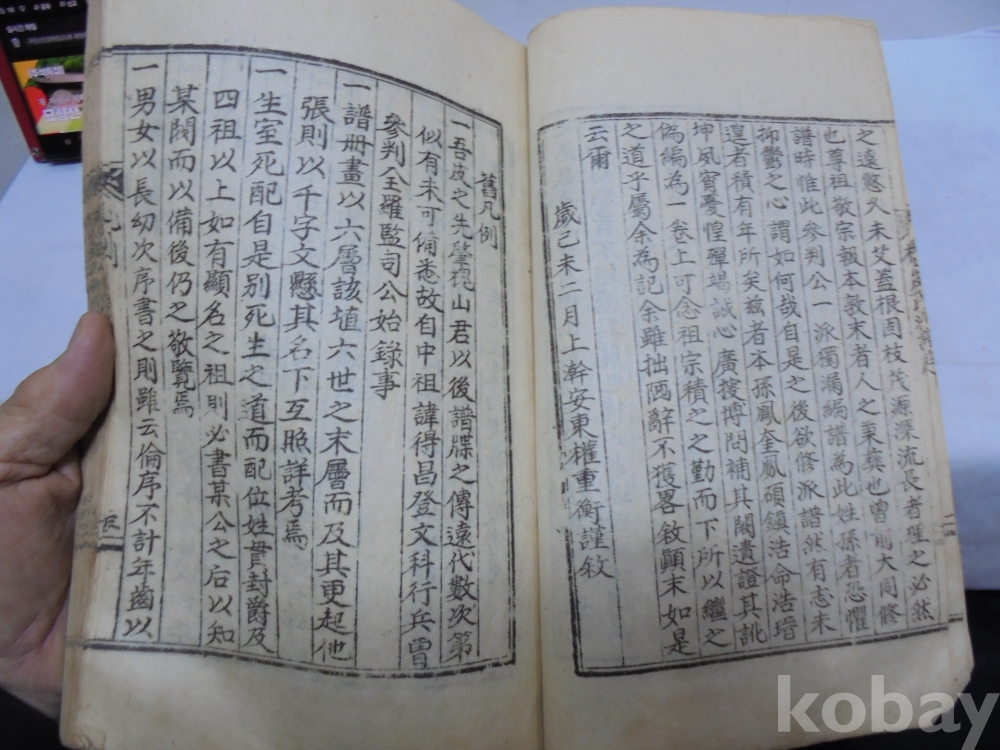 之遠愍久未艾蓋根固枝茂源深流長者理之必然
也尊祖敬宗報本敎末者人之秉彛也曾前大同修
譜時惟此參判公一派獨漏編譜為此姓孫者恐懼
抑鬱之心謂如何哉自是之後欲修派譜然有志未
遑者積有年所矣玆者本孫鳳奎鳳碩鎮浩命浩瑨
坤夙宵憂惶殫竭誠心廣搜博問補其闕遺證其訛
偽編為一卷上可念祖宗積之之勤而下所以繼之
之道乎屬余為記余雖拙陋辭不獲畧敘顚末如是
云爾
歲己未二月上澣安東權重衡謹敘
舊凡例
一吾皮之先肇槐山君以後譜牒之傳遠代數次第
似有未可備悉故自中祖諱得昌登文科行兵曹
參判全羅監司公始錄事
一譜册畫以六層該填六世之末層而及其更起他
張則以千字文懸其名下互照詳考焉
一生室死配自是别死生之道而配位姓貫封爵及
四祖以上如有顯名之祖則必書某公之后以知
某閥而以備後仍之敬覽焉
一男女以長幼次序書之則雖云倫序不計年齒以
kobay